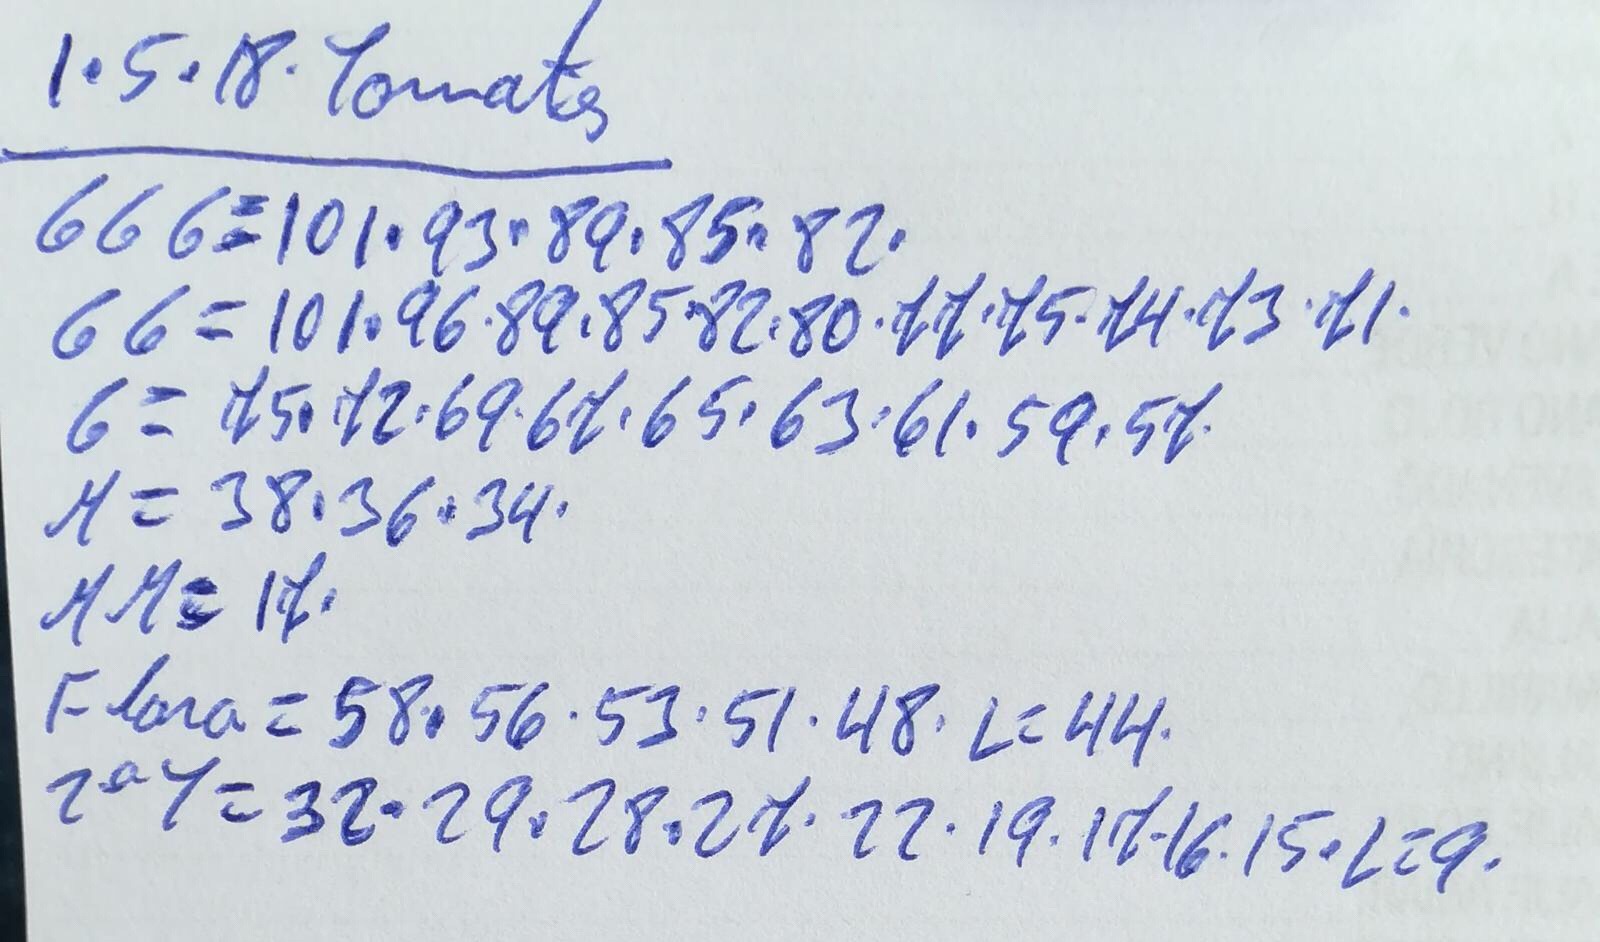 1.5.18. Tomates
GGG=101.93.89.85.82.
GG=101.96.89.85.82.80.77.75.74.73.71.
G=75.72.69.67.65.63.61.59.57.
M=38.36.34.
MM=17.
Flora=58.56.53.51.48.L=44.
2ªT=32.29.28.27.22.19.17.16.15.L=9.